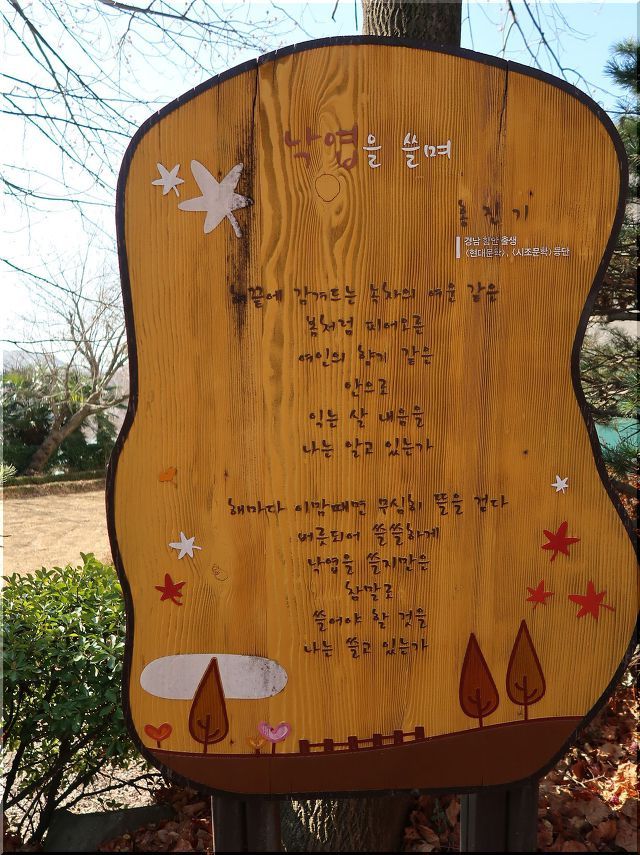 낙엽을 쓸며
홍진기
경남 함안 출생
《현대문학》, 《시조문학》 등단
코끝에 감겨드는 녹차의 여운 같은
봄처럼 피어오른
여인의 향기 같은
안으로
익는 살 내음을
나는 알고 있는가
해마다 이맘때면 무심히 뜰을 걷다
버릇되어 쓸쓸하게
낙엽을 쓸지만은
참말로
쓸어야 할 것을
나는 쓸고 있는가